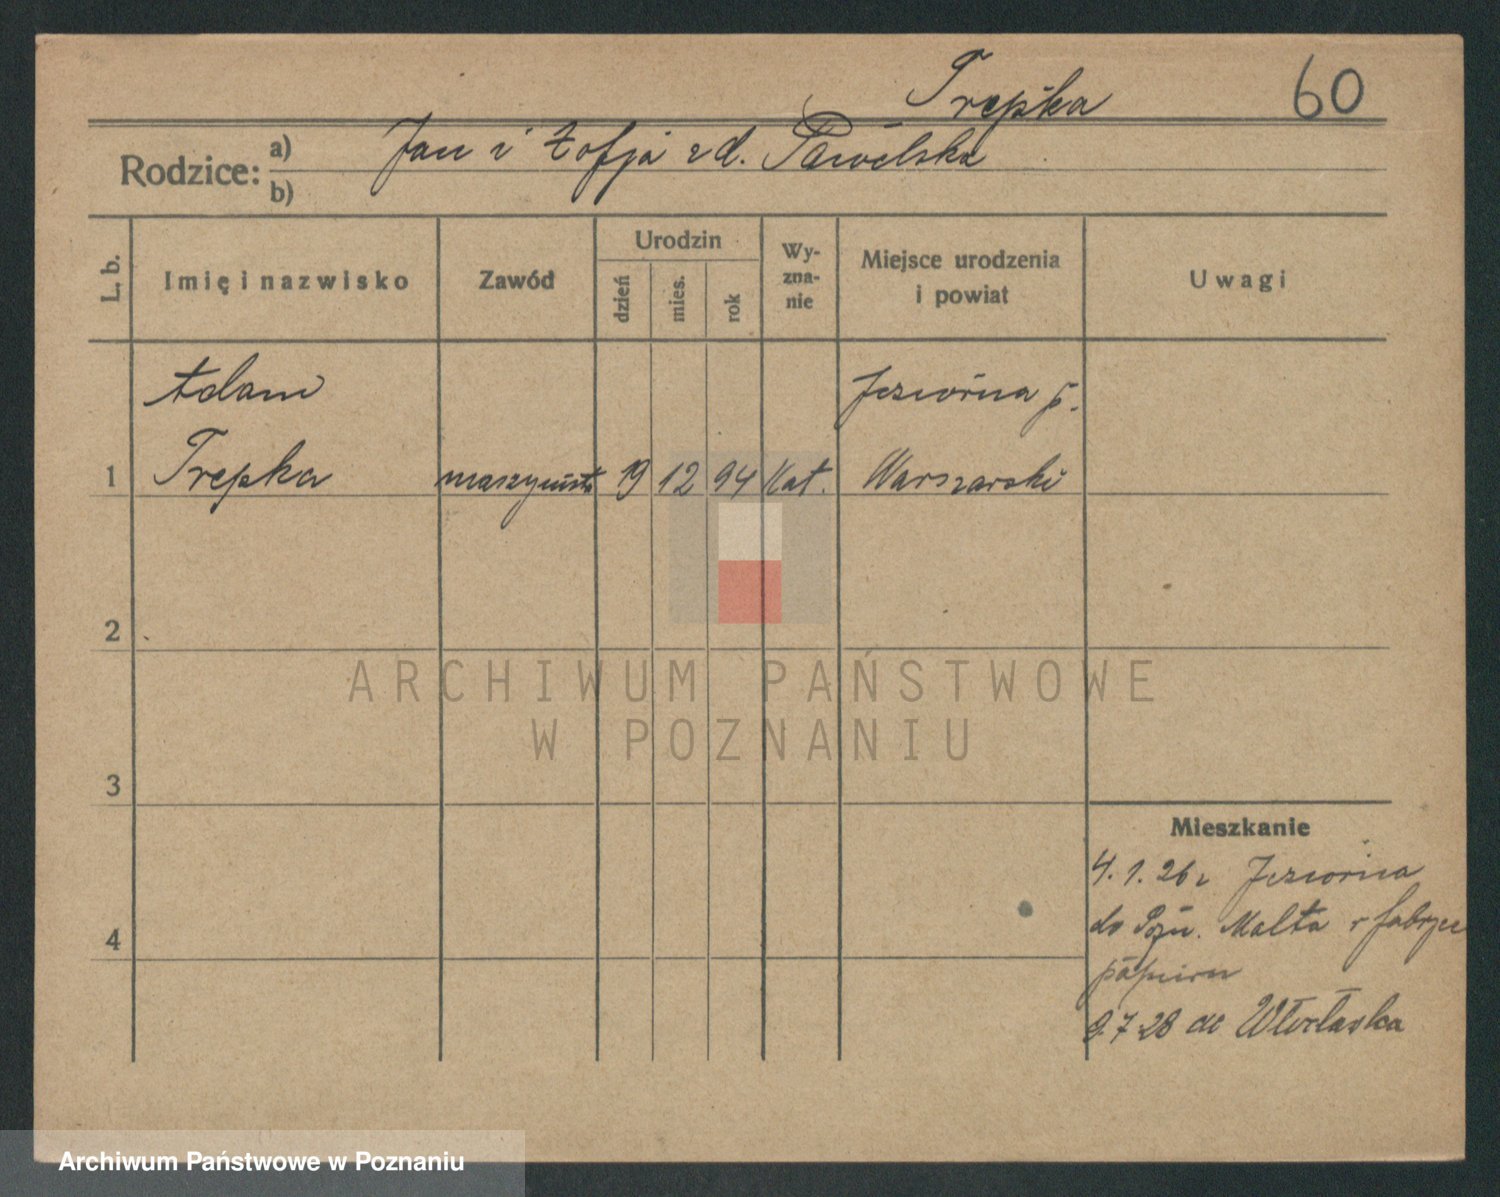 Trepka 60
Rodzice: a) Jan i Zofja zd. Pawelska
b)
L. b. Imię i nazwisko Zawód Urodzin dzień mies. rok Wy-zna-nie Miejsce urodzenia i powiat Uwagi
Adam Jeziorna p.
1 Trepka maszynista 19 12 94 Kat. Warszawski
2
ARCHIWUM PAŃSTWOWE
W POZNANIU
3
Mieszkanie
4. 1. 26 z Jeziorna
do Pozn. Malta w fabryce
4
papieru
9. 7 28 do Włocławka
Archiwum Państwowe w Poznaniu